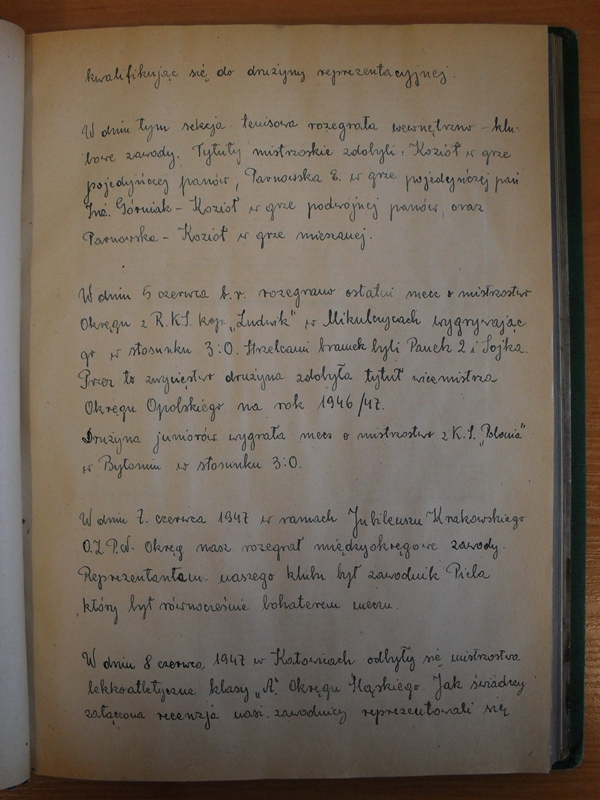 kwalifikując się do drużyny reprezentacyjnej.
W dniu tym sekcja tenisowa rozegrała wewnętrzno-klu-
bowe zawody. Tytuły mistrzoskie zdobyli, Kozioł w grze
pojedyńczej panów, Parnowska E. w grze pojedyńczej pań
Inż. Górniak - Kozioł w grze podwójnej panów, oraz
Parnowska - Kozioł w grze mieszanej.
W dniu 5 czerwca b.r. rozegrano ostatni mecz o mistrzostwo
Okręgu z R.K.S. kop. „Ludwik" w Mikulczycach wygrywając
go w stosunku 3:0. Strzelcami bramek byli Pauch 2 i Sojka.
Przez to zwycięstwo drużyna zdobyła tytuł wicemistrza
Okręgu Opolskiego na rok 1946/47.
Drużyna juniorów wygrała mecz o mistrzostwo z K.S. „Polonia"
w Bytomiu w stosunku 3:0.
W dniu 7. czerwca 1947 w ramach Jubileuszu Krakowskiego
O.Z.P.N. Okręg nasz rozegrał międzyokręgowe zawody.
Reprezentantem naszego klubu był zawodnik Piela
który był równocześnie bohaterem meczu.
W dniu 8 czerwca 1947 w Katowicach odbyły się mistrzostwa
lekkoatletyczne klasy „A" Okręgu Śląskiego. Jak świadczy
załączona recenzja nasi zawodnicy reprezentowali się